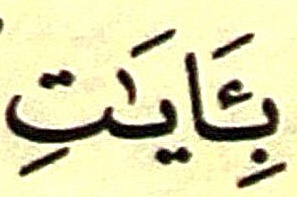 بِـَٔايَـٰتِ